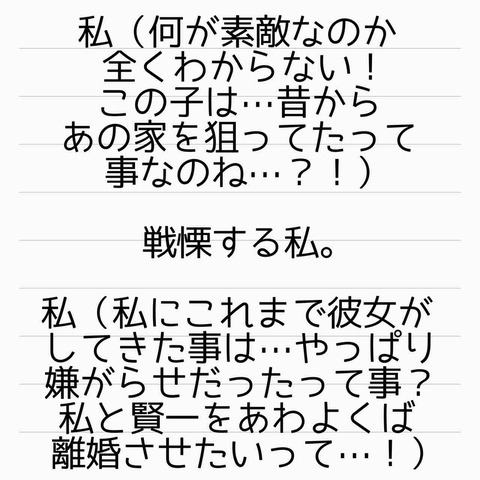 私（何が素敵なのか
全くわからない！
この子は…昔から
あの家を狙ってたって
事なのね…？！）
戦慄する私。
私（私にこれまで彼女が
してきた事は…やっぱり
嫌がらせだったって事？
私と賢一をあわよくば
離婚させたいって…！）